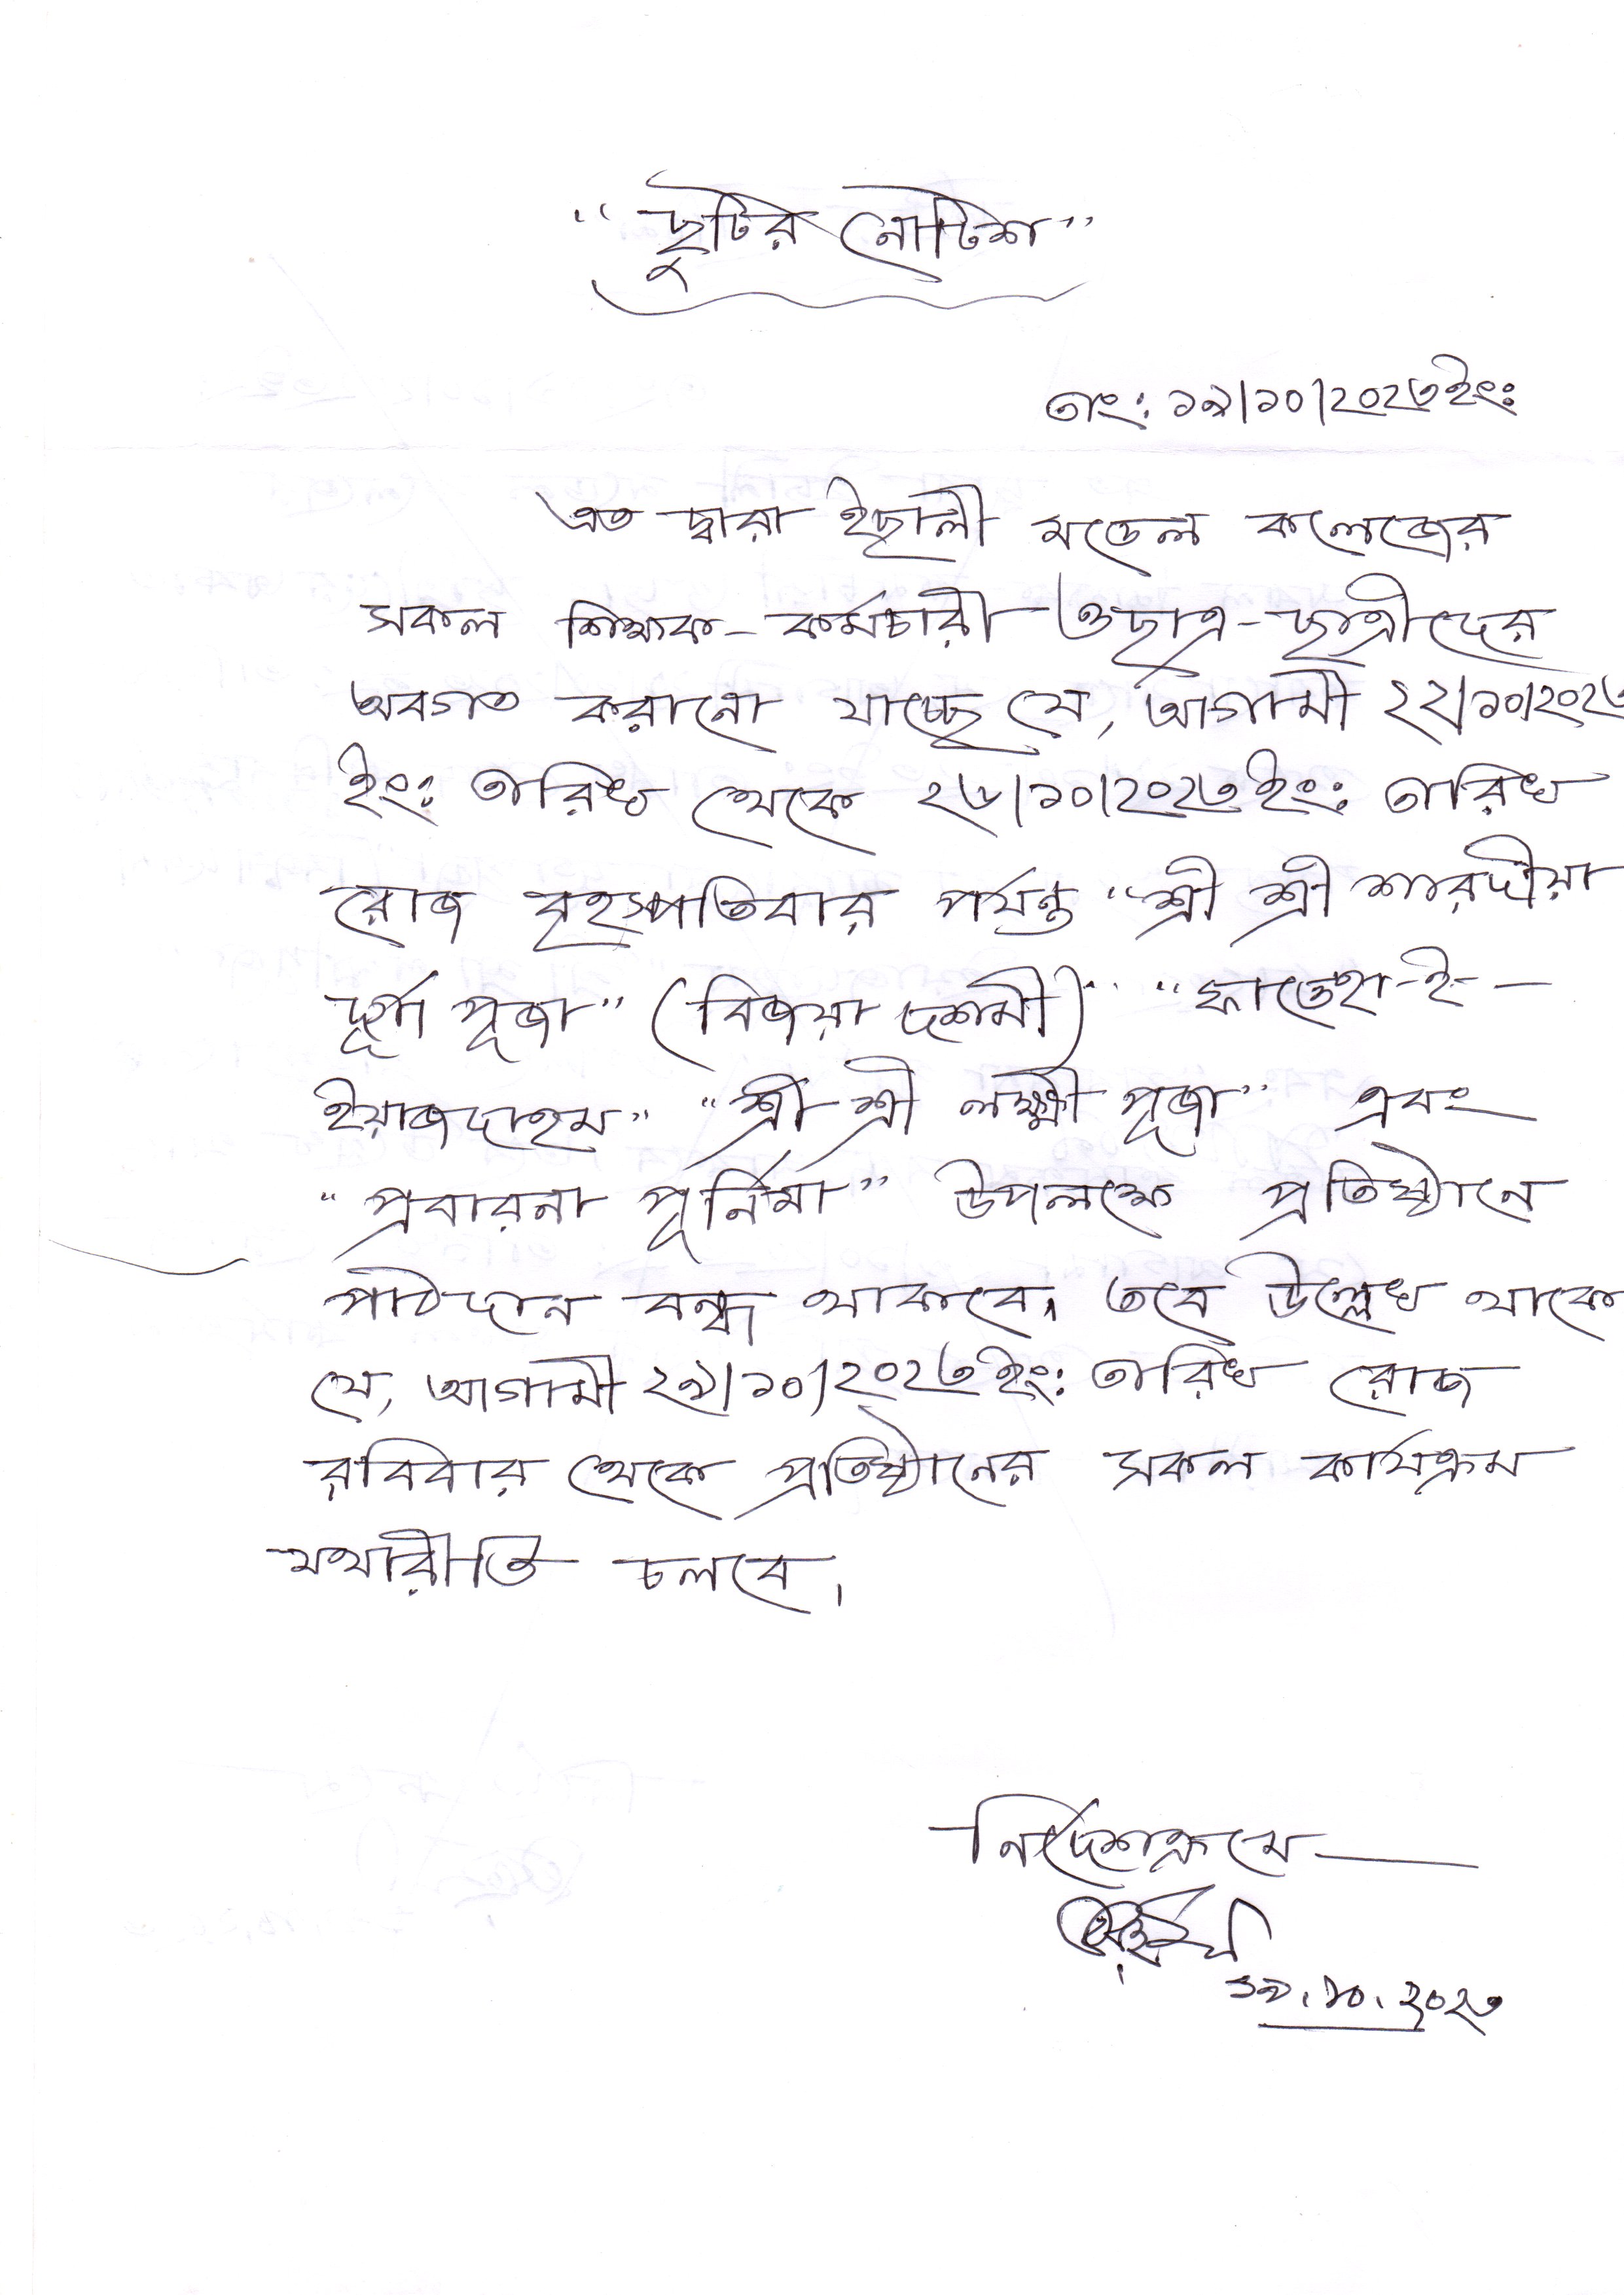 “ছুটির নোটিশ”
তাং: ১৯/১০/২০২৩ইং:
এত দ্বারা ইছালী মডেল কলেজের
সকল শিক্ষক-কর্মচারী ও ছাত্র-ছাত্রীদের
অবগত করানো যাচ্ছে যে, আগামী ২২/১০/২০২৩
ইং: তারিখ থেকে ২৬/১০/২০২৩ইং: তারিখ
রোজ বৃহস্পতিবার পর্যন্ত “শ্রী শ্রী শারদীয়া
দূর্গা পূজা” (বিজয়া দশমী)” “ফাতেহা-ই-
ইয়াজদাহম” “শ্রী শ্রী লক্ষ্মী পূজা” এবং
“প্রবারনা পূর্নিমা” উপলক্ষে প্রতিষ্ঠানে
পাঠদান বন্ধ থাকবে। তবে উল্লেখ থাকে
যে, আগামী ২৯/১০/২০২৩ইং: তারিখ রোজ
রবিবার থেকে প্রতিষ্ঠানের সকল কার্যক্রম
যথারীতি চলবে।
নির্দেশক্রমে
১৯.১০.২০২৩